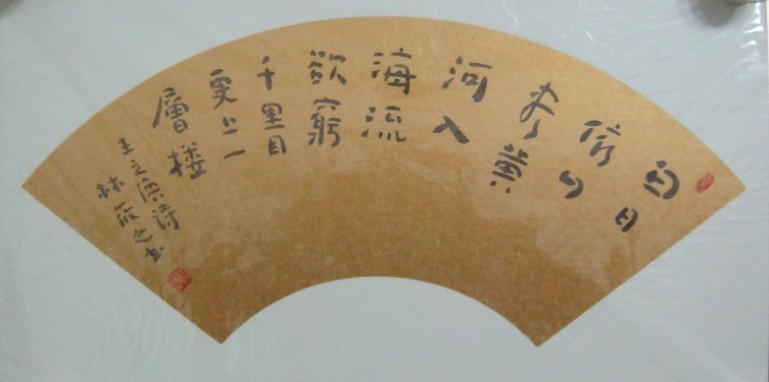 白日
依山
尽黄
河入
海流
欲窮
千里目
更上一
層楼
王之涣诗
林筱之书